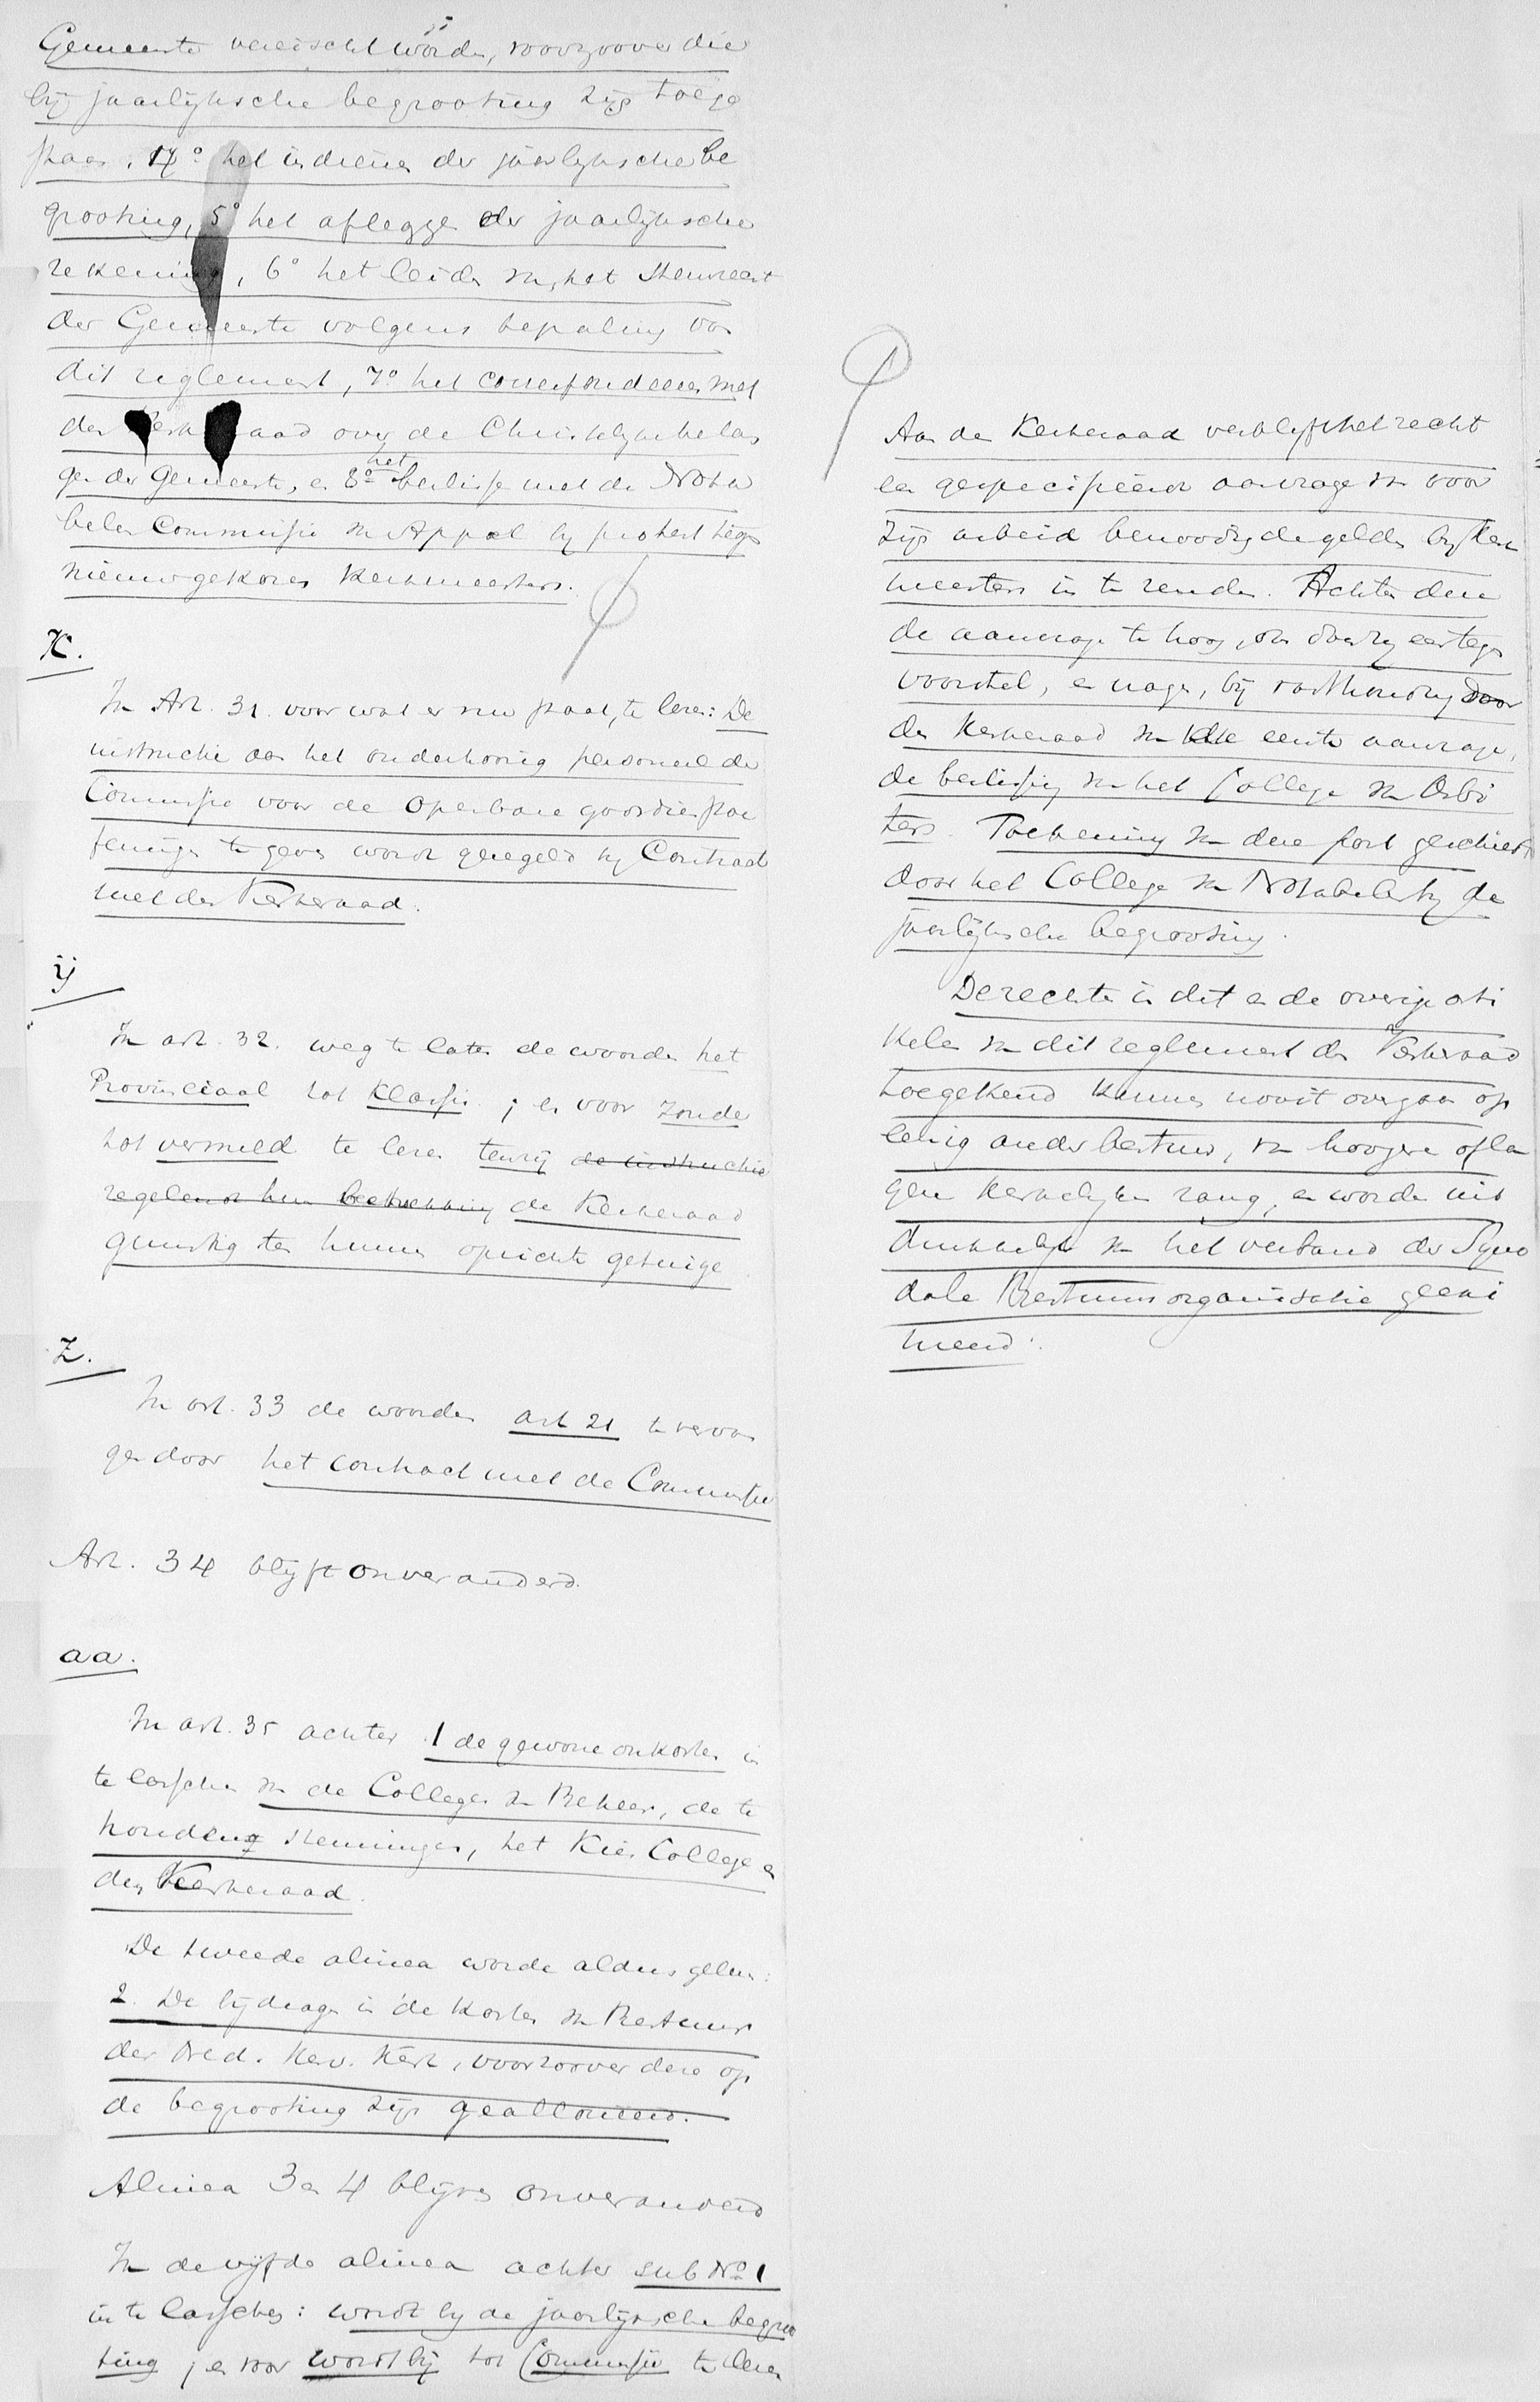 Gemeente vereischt worden, voorzoover die
bij jaarlijksche begrooting zijn toege
staan, 4º het indienen der jaarlijksche be
grooting, 5º het afleggen der jaarlijksche
rekening, 6º het leiden van het Stemrecht
der Gemeente volgens bepaling van
dit reglement, 7º het correspondeeren met
den Kerkeraad over de Christelijke belan
gen der Gemeente, en 8º het beslissen met de Nota
belen Commissie in Appel bij protest tegen
nieuwgekozen Kerkmeesters.
X.
In Art. 31. voor wat er nu staat, te lezen: De
instructie aan het onderhoorig personeel der
Commissie voor de Openbare godsdienstoe
feningen te geven wordt geregeld bij Contract
met den Kerkeraad.
ij
In art. 32. weg te laten de woorden het
Provinciaal tot Klassis; en voor zonder
tot vermeld te lezen tenzij de instructie
regelende hun betrekking de Kerkeraad
gunstig ten hunnen opzichte getuige
Z.
In art. 33 de woorden art 21 te vervan
gen door het contract met de Commissie
Art. 34 blijft onveranderd.
aa.
In art. 35 achter 1 de gewone onkosten in
te lasschen van de Colleges van Beheer, de te
houden stemmingen, het Kies College en
den Kerkeraad.
De tweede alinea worde aldus gelezen:
2. De bijdragen in de kosten van Bestuur
der Ned. Herv. Kerk, voorzoover deze op
de begrooting zijn gealloueerd.
Alinea 3 en 4 blijven onveranderd
In de vijfde alinea achter sub Nº 1
in te lasschen: wordt bij de jaarlijksche begroo
ting; en voor wordt bij tot Commissie te lezen
Aan den Kerkeraad verblijft het recht
een gespecifieerde aanvrage van voor
zijn arbeid benoodigde gelden bij Kerk
meesters in te zenden. Achten deze
de aanvrage te hoog, dan doen zij een tegen
voorstel, en vragen, bij vasthouding door
den Kerkeraad van de eerste aanvrage,
de beslissing van het College van Arbi
ters. Toekenning van deze post geschiedt
door het College van Notabelen bij de
jaarlijksche begrooting.
De rechten in dit en de overige arti
kelen van dit reglement den Kerkeraad
toegekend kunnen nooit overgaan op
eenig ander bestuur, van hoogere of la
gere kerkelijken rang, en worden uit
drukkelijk van het verband der Syno
dale Bestuursorganisatie geëxi
meerd.